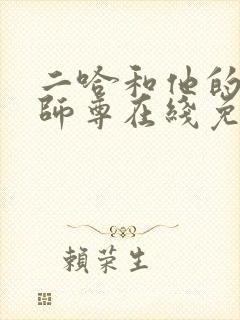 二哈和他的
師尊在綫免
賴荣生